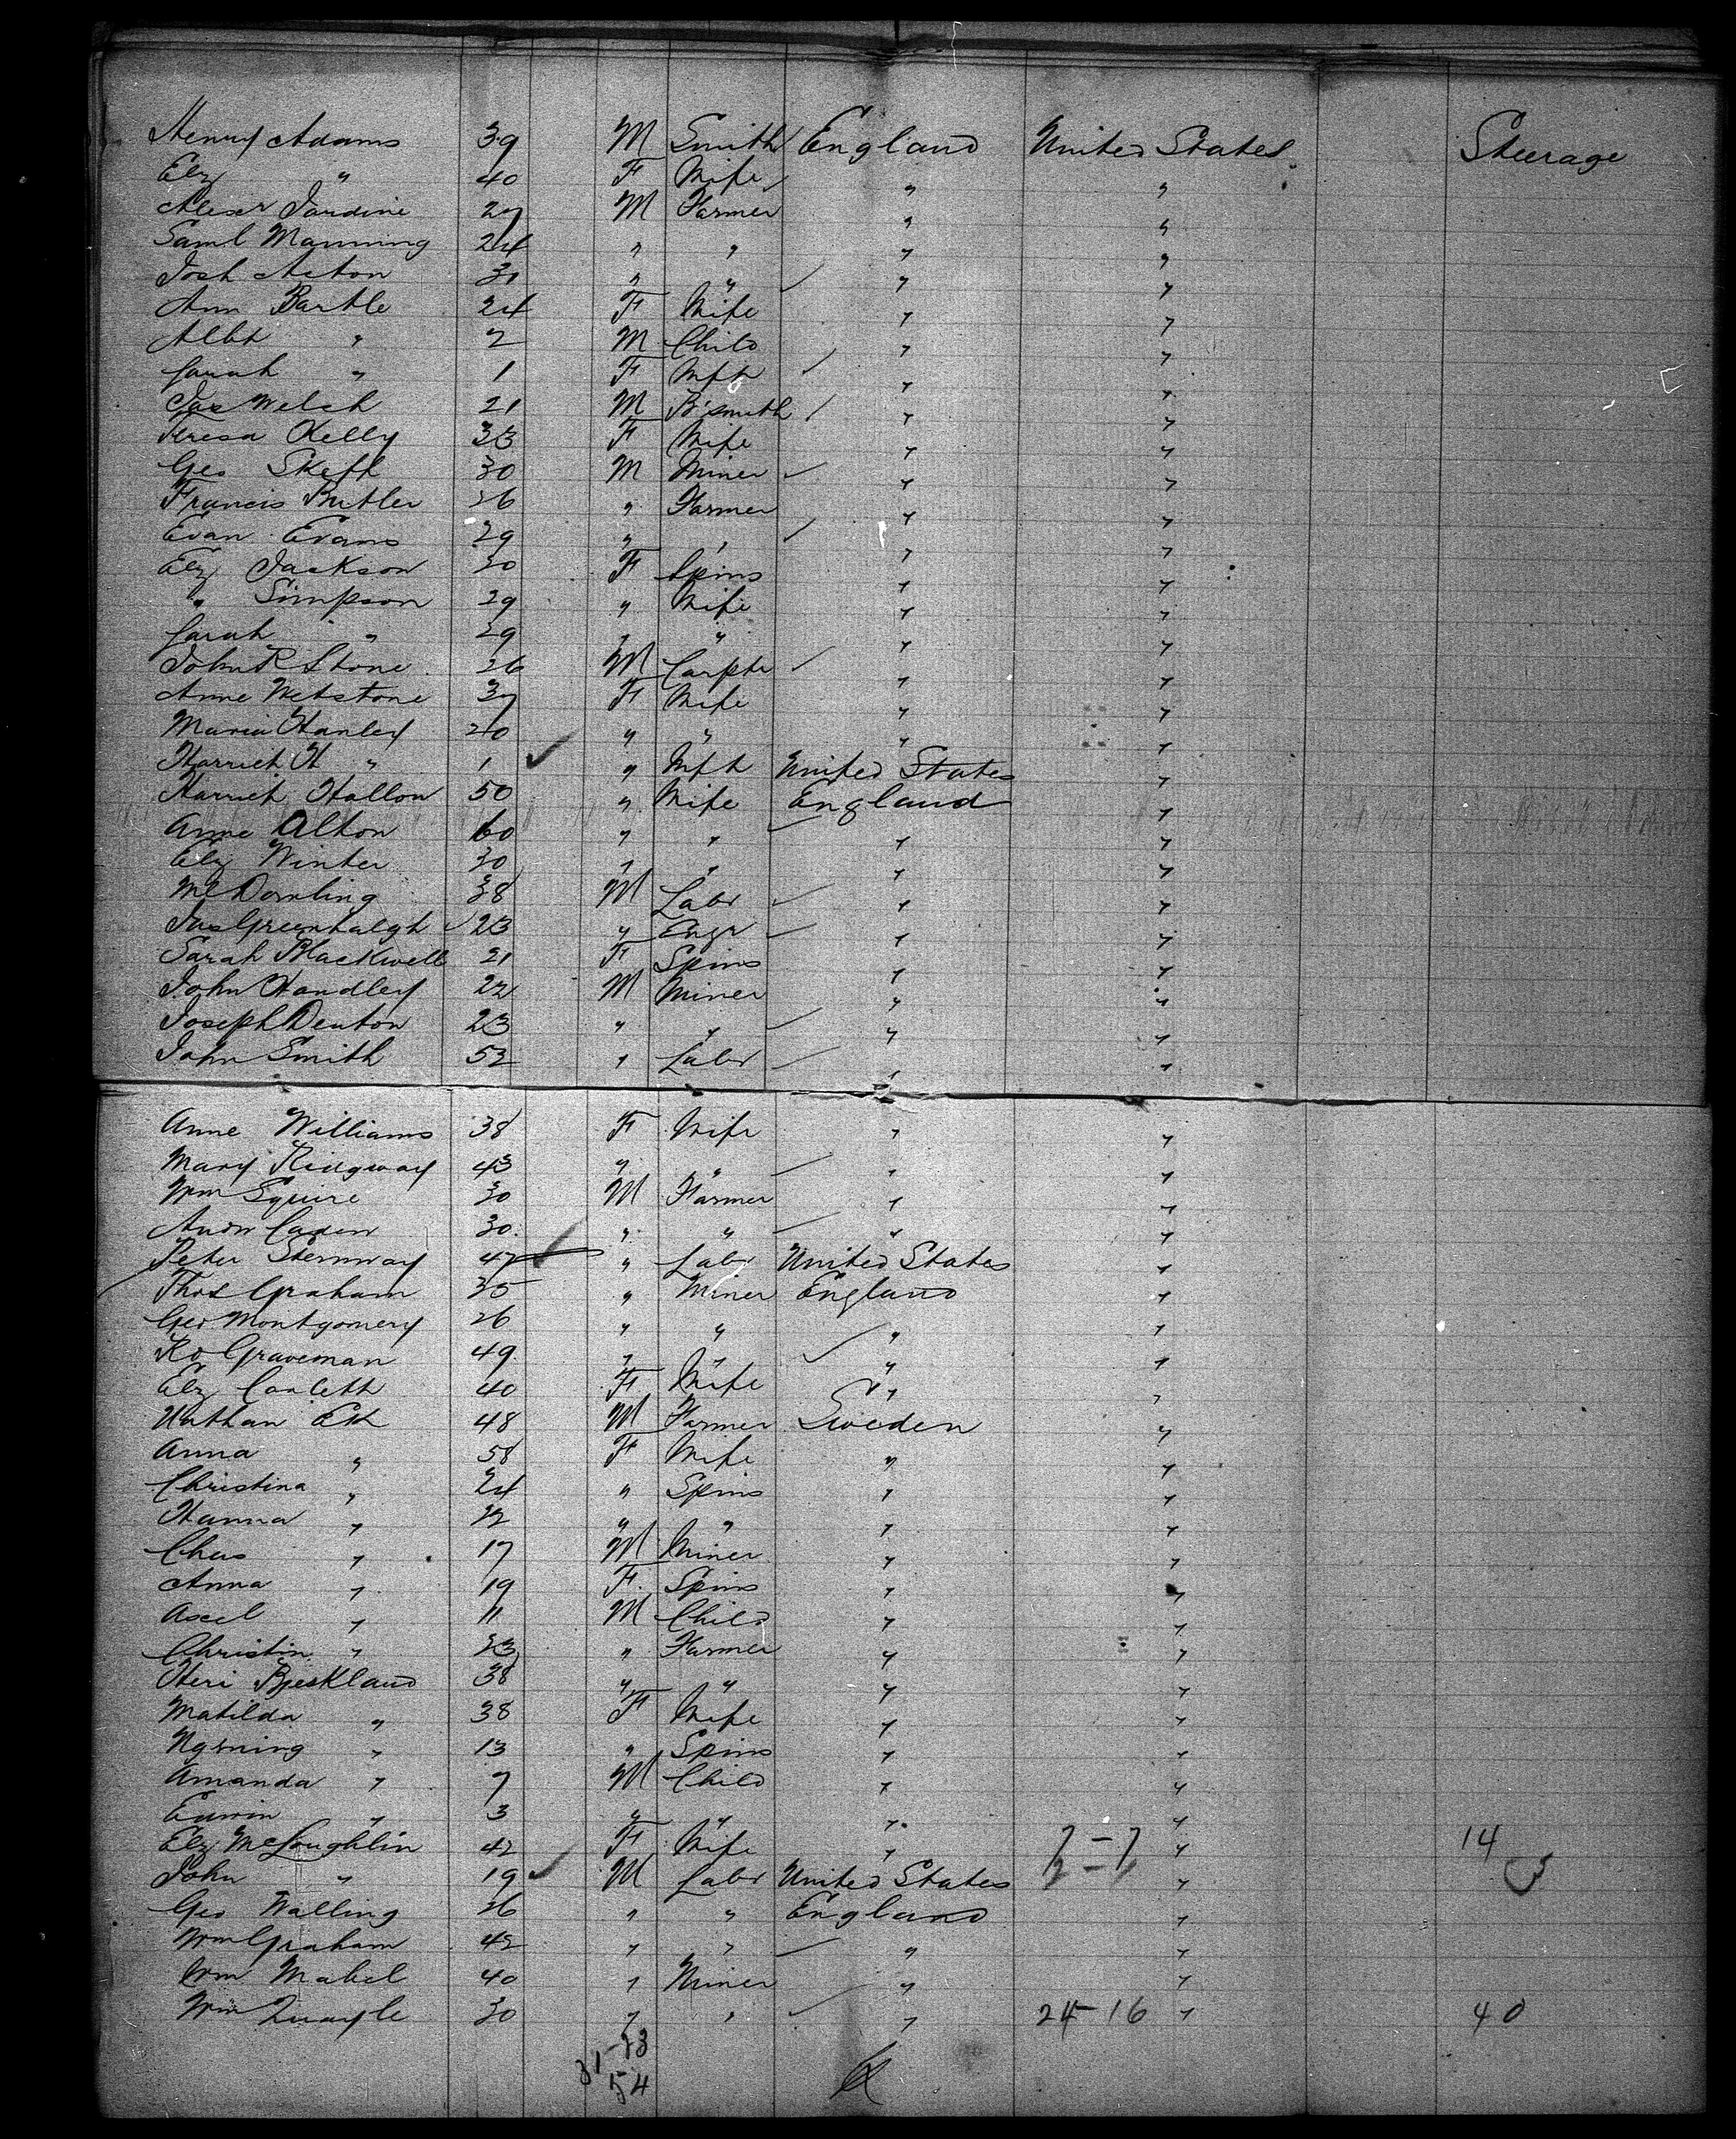 Henry Adams 39 M Smith England United States Steerage
Elz " 40 F Wife " "
Alexr Jardine 27 M Farmer " "
Saml Manning 24 " " " "
Josh Acton 31 " " " "
Ann Bartle 24 F Wife " "
Albt " 2 M Child " "
Sarah " 1 F Inft " "
Jas Welch 21 M B'smith " "
Teresa Kelly 33 F Wife " "
Geo Skeft 30 M Miner " "
Francis Butler 26 " Farmer " "
Evan Evans 29 " " " "
Elz Jackson 30 F Spins " "
" Simpson 29 " Wife " "
Sarah " 29 " " " "
John R Stone 26 M Carptr " "
Anne Wetstone 37 F Wife " "
Maria Hanley 20 " " " "
Harriet H " 1 " Inft United States "
Harriet Hallon 50 " Wife England "
Anne Alton 60 " " " "
Elz Winter 30 " " " "
Dowling 38 M Labr " "
Jas Greenhalgh 23 " Engr " "
Sarah Blackwell 21 F Spins " "
John Handley 22 M Miner " "
Joseph Denton 23 " " " "
John Smith 52 " Labr " "
Anne Williams 38 F Wife " "
Mary Ridgway 43 " " " "
Wm Squire 30 M Farmer " "
Andw 30 " " " "
Peter Sternway 47 " Labr United States "
Thos Graham 35 " Miner England "
Geo Montgomery 26 " " " "
Ro Graveman 49 " " " "
Elz Corlett 40 F Wife " "
Nathan Ek 48 M Farmer Sweden "
Anna " 58 F Wife " "
Christina " 24 " Spins " "
Hanna " " " " "
Chas " 17 M Miner " "
Anna " 19 F Spins " "
Axel " 11 M Child " "
Christin " 23 " Farmer " "
Bjeskland 38 " " " "
Matilda " 38 F Wife " "
" 13 " Spins " "
Amanda " 7 M Child " "
Edwin " 3 " " " "
Elz McLoughlin 42 F Wife " 7-7 " 14
John " 19 M Labr United States "
Geo Walling 26 " " England "
Wm Graham 42 " " " "
Wm Mabel 40 " Miner " "
Wm Quayle 30 " " " 24-16 " 40
31-23
54